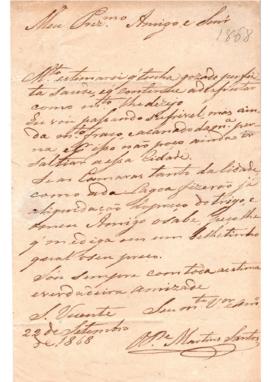 Meu Prez.mo Amigo e Snr
1868
M.to estimarei q tenha gozado perfeita
saude, e q continue a desfrutar
como m.to lhe dezejo
Eu vou passando sofrivel, mas ainda
m.to fraco, e acanado da m.a perna
e p.r isso não posso ainda
voltar a essa Cidade.
Se as Camaras tanto da Cidade,
como a da Lagoa fizerão já
a liquidação do preço do trigo, e
o meu Amigo o sabe, peço lhe
q m'o diga em um bilhetinho
qual o seu preço.
Sou sempre com toda a estima
e verdadeira amizade
S. Vicente
22 de Setembro
de 1868
Seu m.to V.or Am.o
Martins Santos